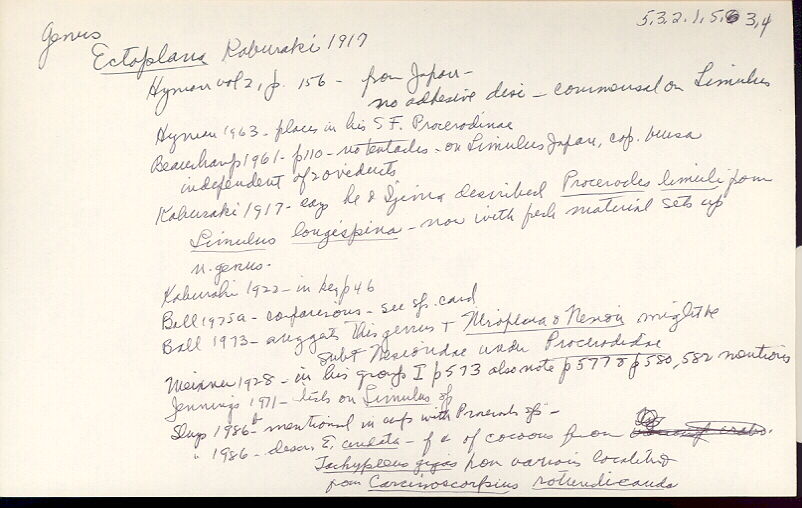 5.3.2.1.5.6 3,4
Genus
Ectoplana Kaburaki 1917
Hyman vol 2, p. 156 - from Japan -
no adhesive disc - commensal on Limulus
Hyman 1963 - places in his S.F. Procerodinae
Beauchamp 1961 - p110 - no tentacles - on Limulus Japan, cop. bursa
independent of 2 oviducts
Kaburaki 1917 - says he & Ijima described Procerodes limuli from
Limulus longispina - now with fresh material sets up
n. genus.
Kaburaki 1922 - in key p46
Ball 1975a - comparisons - see sp. card
Ball 1973 - suggests this genus + Miroplana & Nexilis might be
subf Nesiondae under Procerodidae
Meixner 1928 - in his group I p573 also note p577 & p580, 582 mentions
Jennings 1971 - lists on Limulus sp
Sluys 1986b - mentioned in comp with Procerod. sp -
" 1986 - descr. E. undata - f of cocoons from
Tachypleus gigas from various localities
from Carcinoscorpius rotundicauda